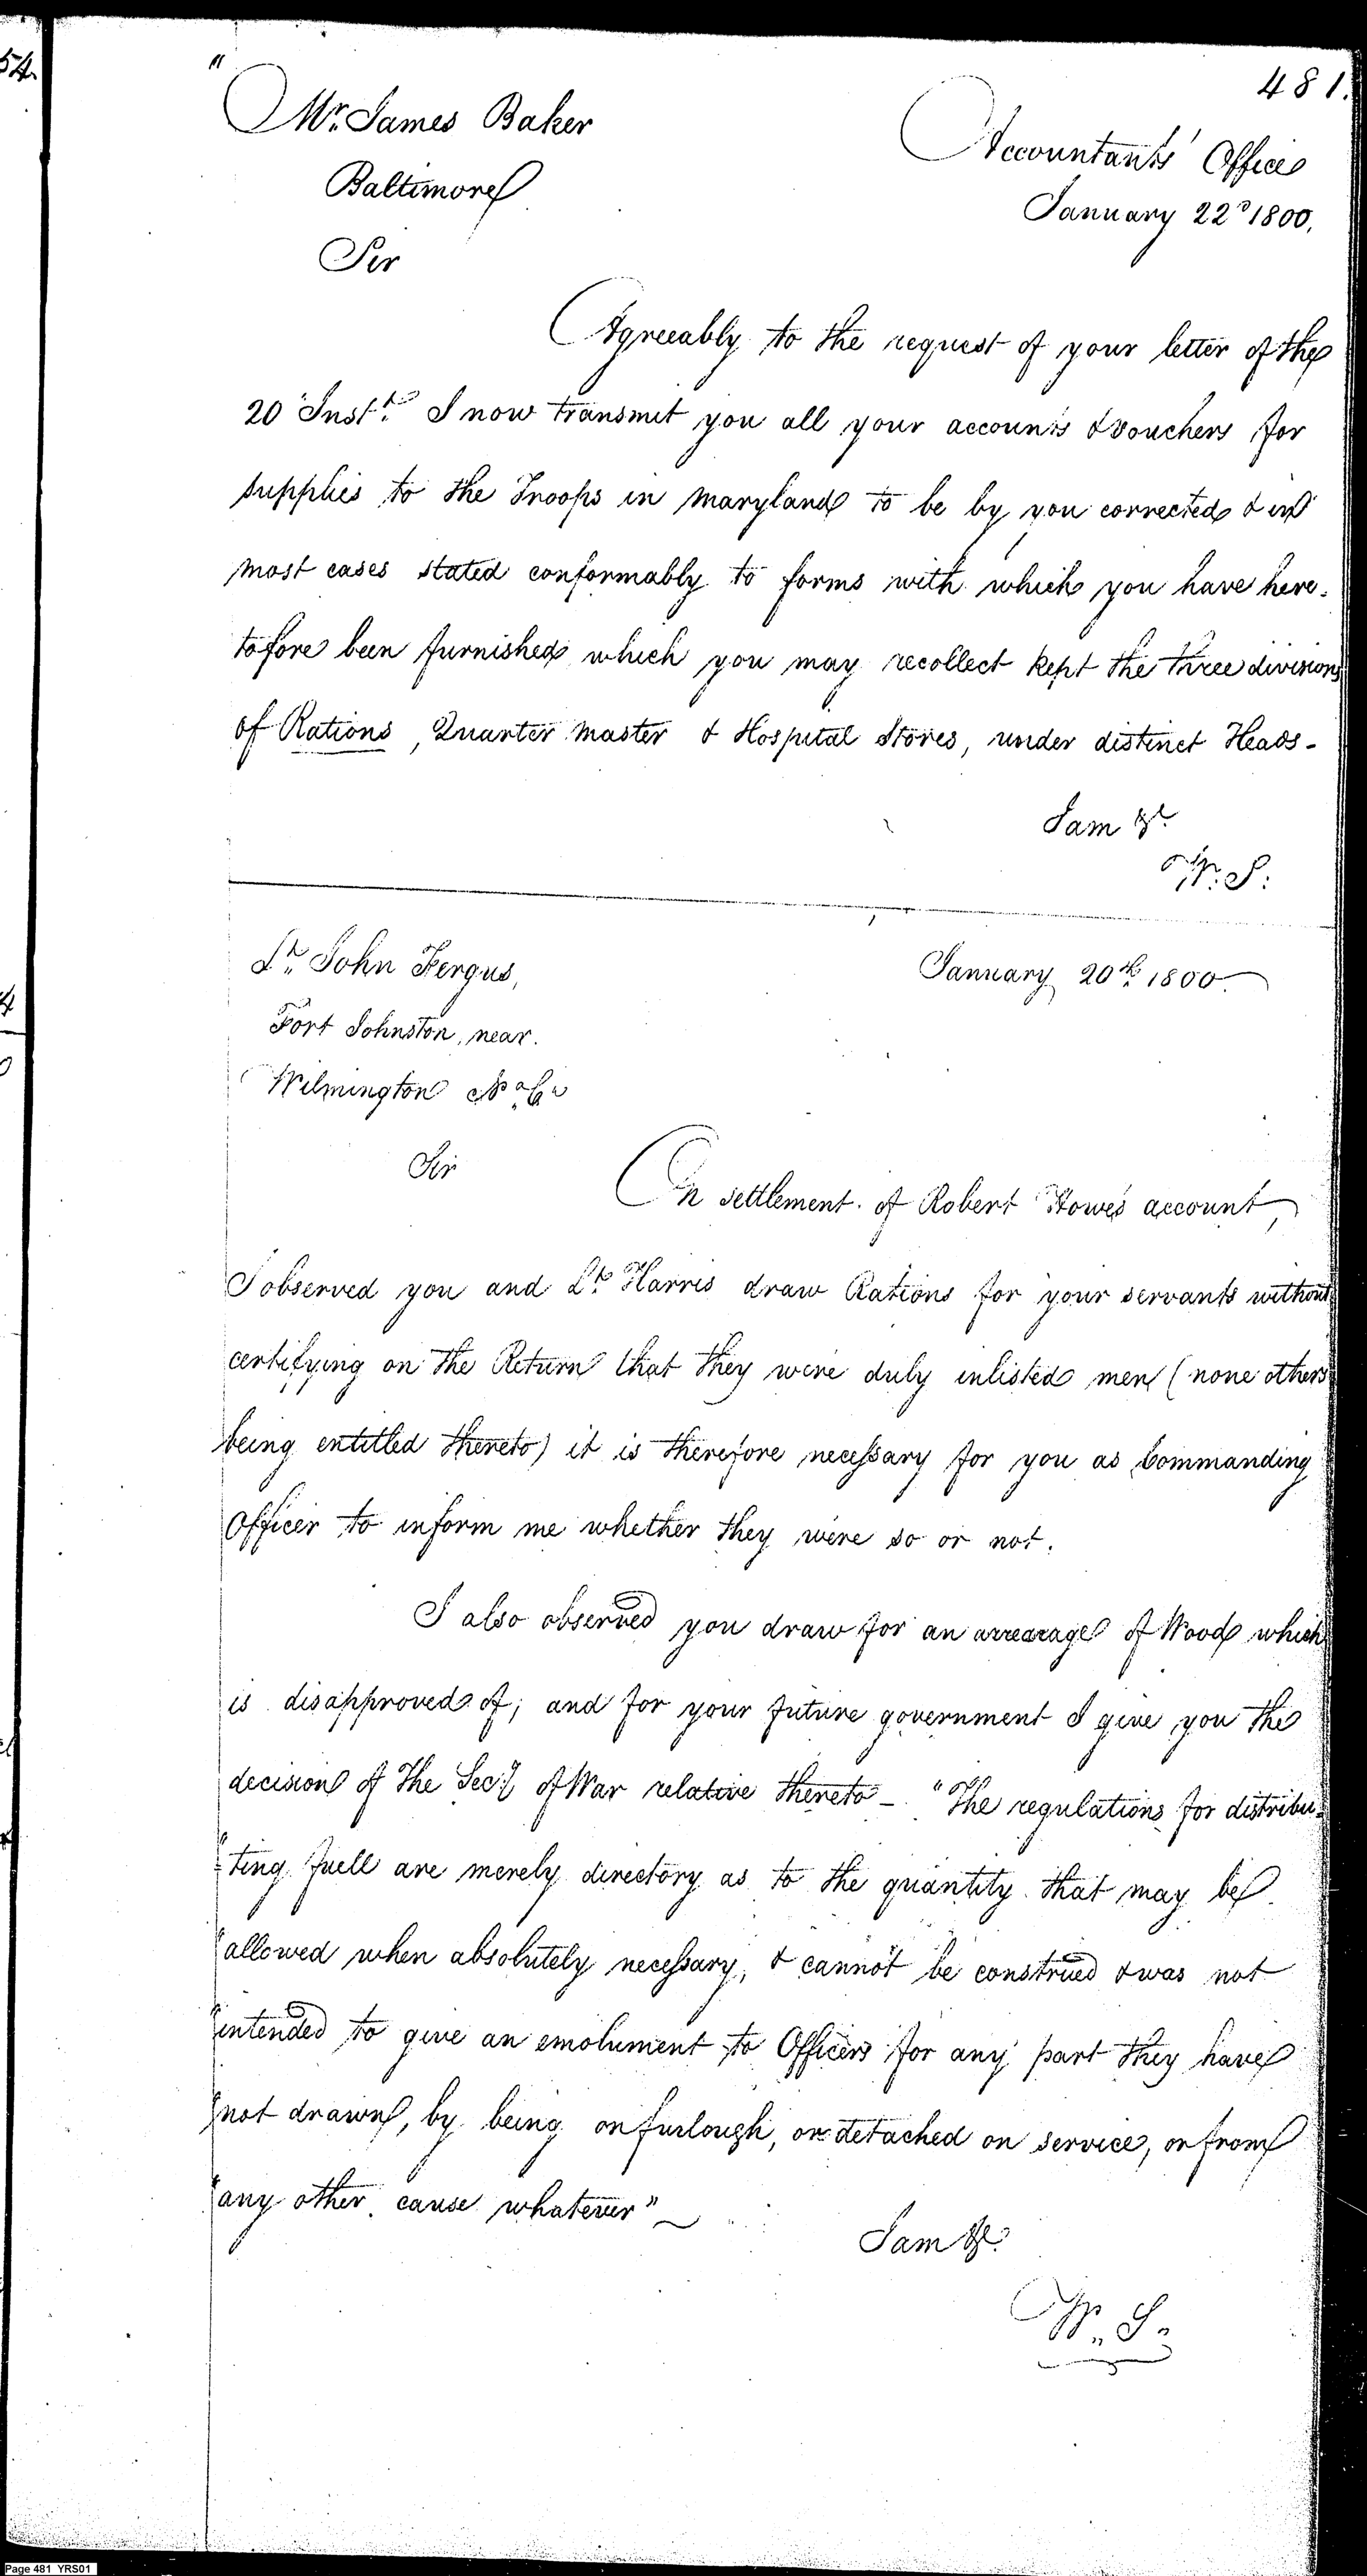 481.
Mr. James Baker
Baltimore
Accountants' Office
January 22d 1800.
Sir
Agreeably to the request of your letter of the
20 Instt. I now transmit you all your accounts & vouchers for
supplies to the Troops in Maryland to be by you corrected & in
most cases stated conformably to forms with which you have here-
tofore been furnished which you may recollect kept the three divisions
of Rations, Quarter Master & Hospital Stores, under distinct Heads-
I am &c.
W. S.
Lt. John Fergus,
Fort Johnston, near
Wilmington No. Ca.
January 20th 1800.
Sir
On settlement of Robert Howes account,
I observed you and Lt. Harris draw Rations for your servants without
certifying on the Return that they were duly inlisted men (none others
being entitled thereto) it is therefore necessary for you as Commanding
Officer to inform me whether they were so or not.
I also observed you draw for an arrearage of Wood which
is disapproved of; and for your future government I give you the
decision of the Secy. of War relative thereto - "The regulations for distribu-
"ting fuell are merely directory as to the quantity that may be
"allowed when absolutely necessary, & cannot be construed & was not
"intended to give an emolument to Officers for any part they have
"not drawn, by being on furlough, or detached on service, or from
"any other cause whatever"
I am &c.
W. S.
Page 481 YRS01